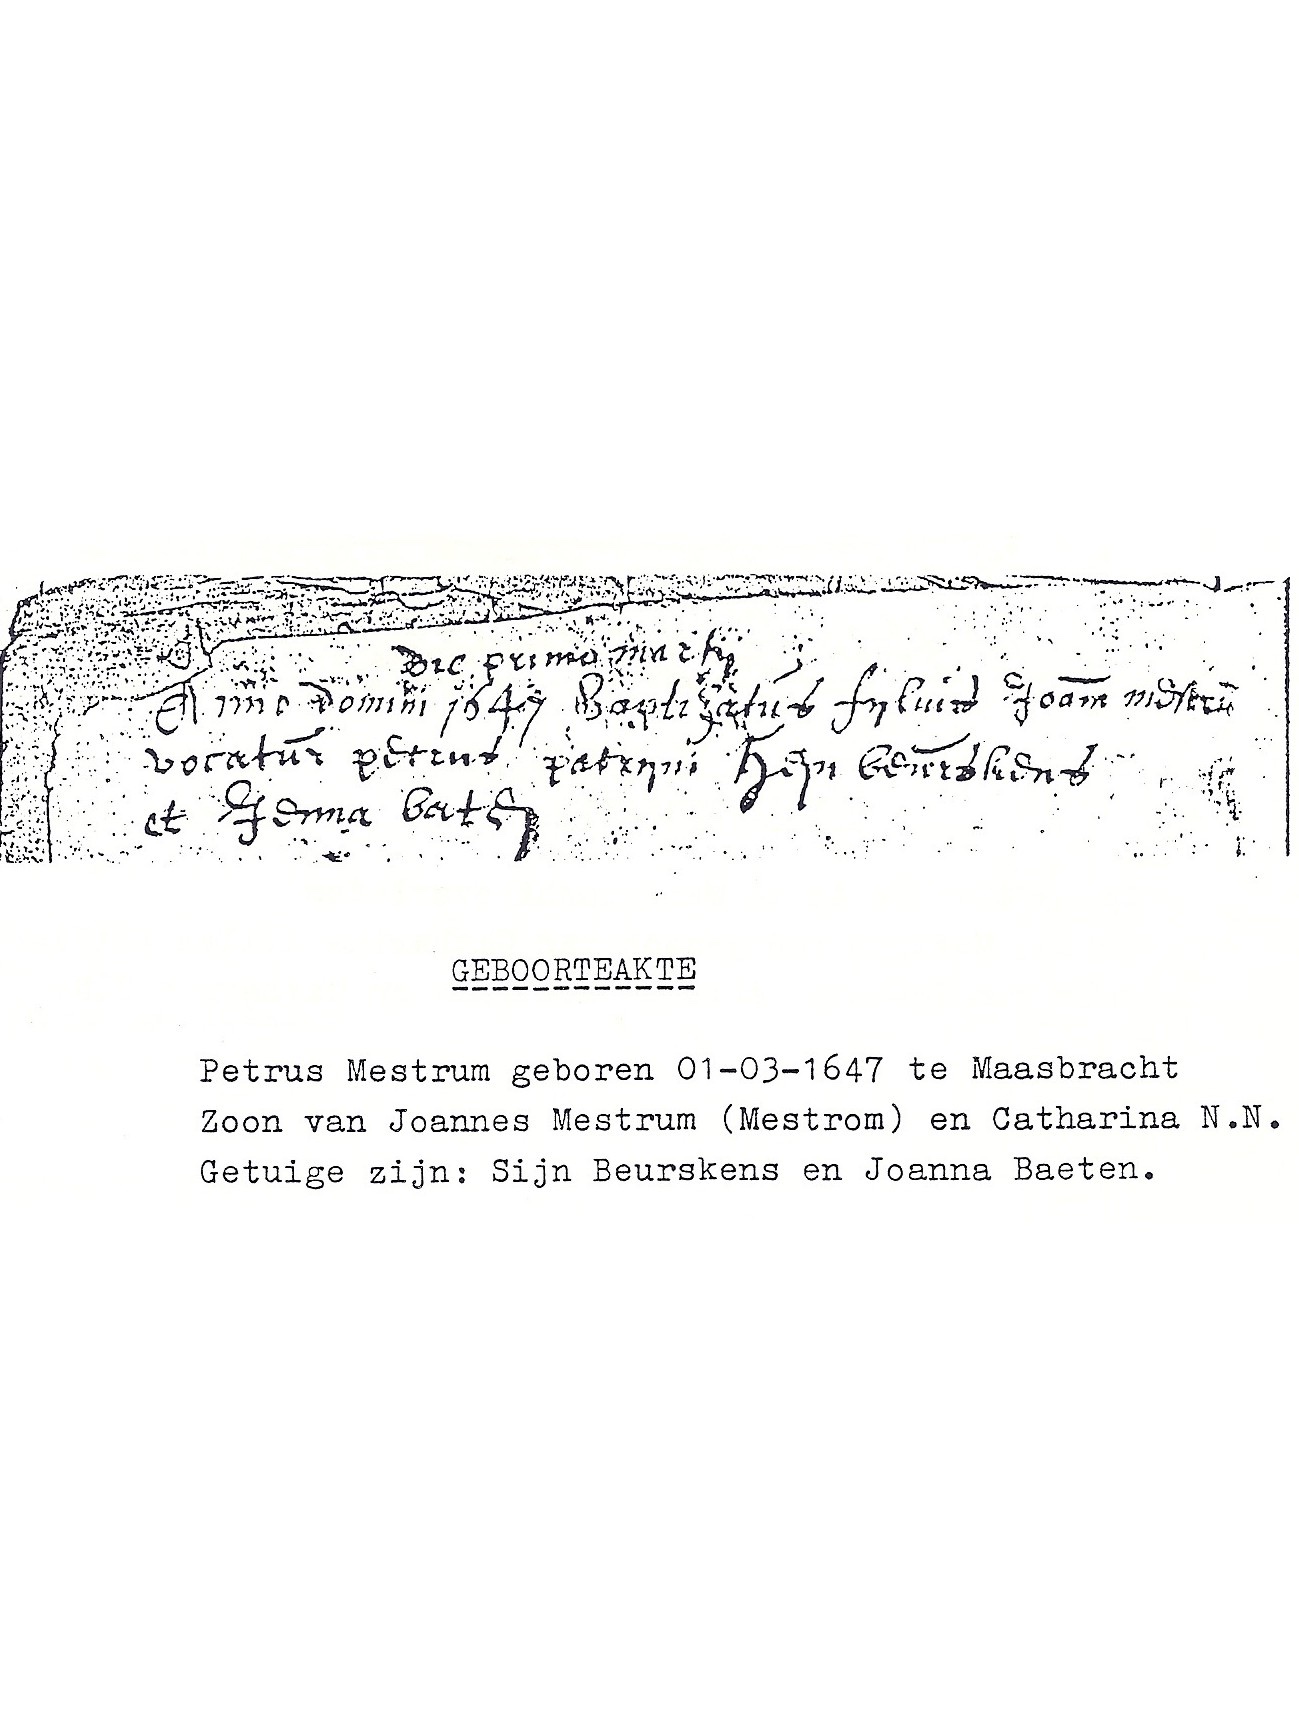 Die primo martij
Anno Domini 1647 Baptizatus fylius Joam mestrū
vocatur petrus patryni Heyn beurskens
et Jenna baten
GEBOORTEAKTE
Petrus Mestrum geboren 01-03-1647 te Maasbracht
Zoon van Joannes Mestrum (Mestrom) en Catharina N.N.
Getuige zijn: Sijn Beurskens en Joanna Baeten.